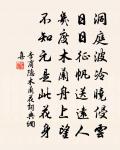 洞庭波冷曉侵雲
日日征帆送遠人
幾度木蘭舟上望
不知元是此花身
李商隱木蘭花詞典網